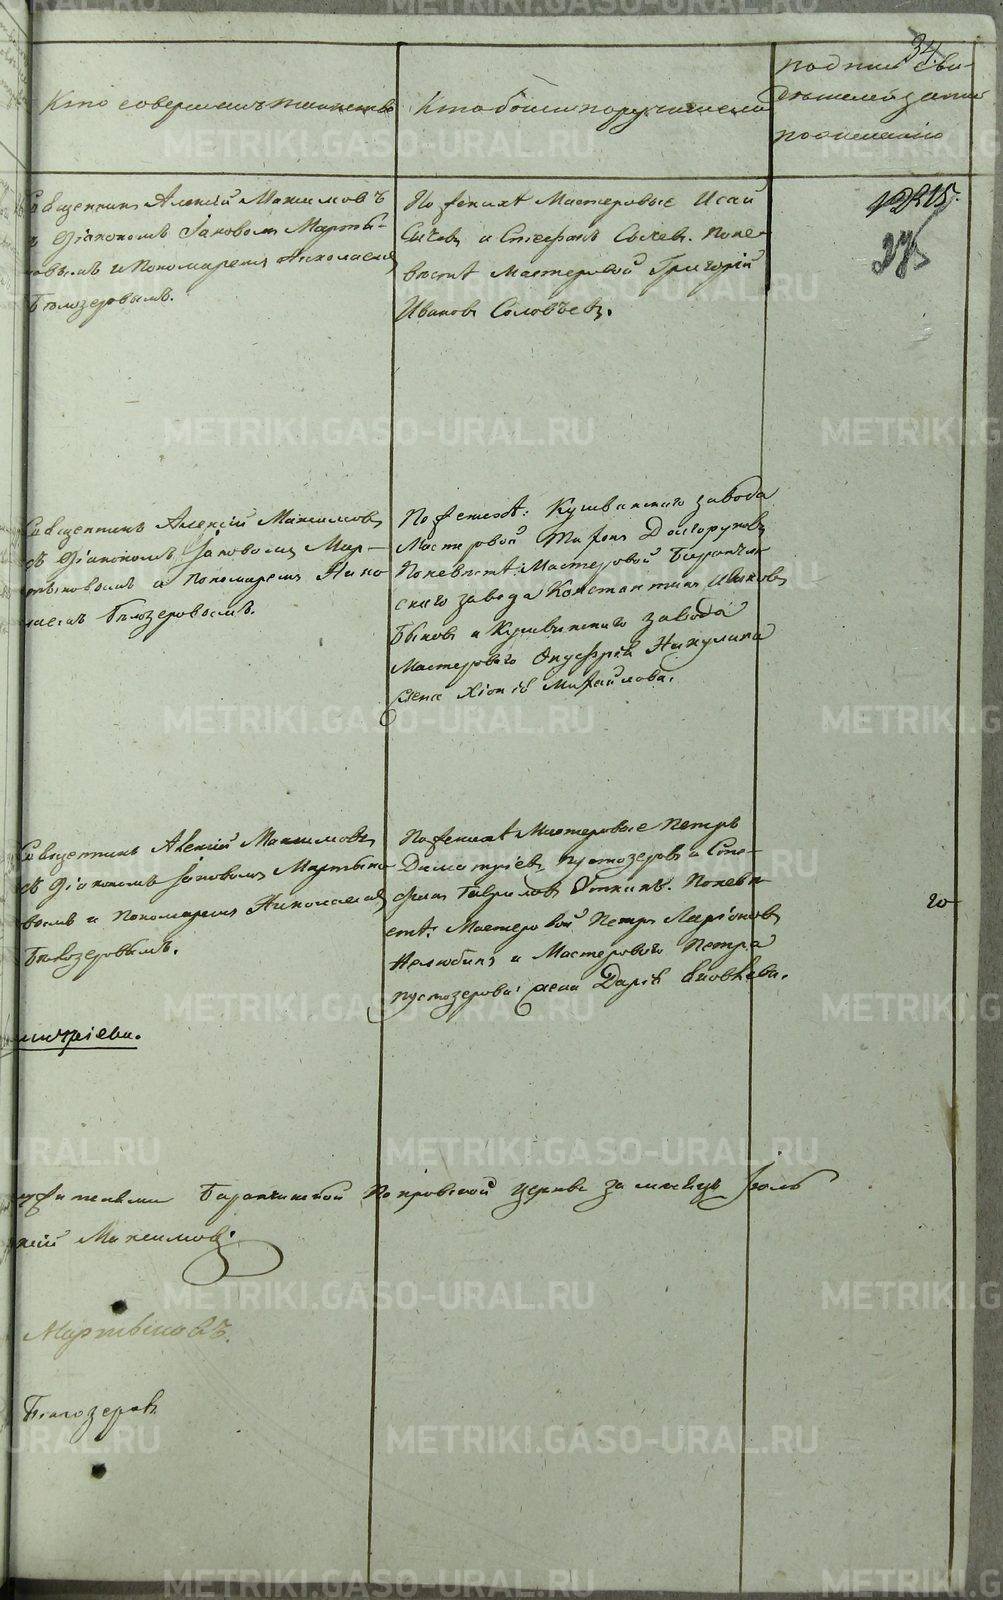 34
Кто совершалъ таинство
Кто были поручители
подпис сви-
дѣтелей записи
по желанію
Священникъ Алексій Максимовъ
съ Діакономъ Іаковомъ Марты-
новымъ и Пономаремъ Николаемъ
Бѣлозеровымъ.
По женихѣ Мастеровые Исай
Сычевъ и Стефанъ Сычев. По не-
вѣстѣ мастеровой Григорій
Ивановъ Соловьевъ.
Священникъ Алексій Максимовъ
съ Діакономъ Іаковомъ Мар-
тыновомъ и пономаремъ Нико
лаемъ Бѣлозеровымъ.
По женихѣ: Кушвинскаго завода
Мастеровой Долгоруковъ
По невѣстѣ: Мастеровой Баранчин
скаго завода Константинъ Ивановъ
Быковъ и Кушвинскаго завода
Мастероваго Онуфрія Никулина
жена Хіонія Михайлова.
Священникъ Алексій Максимовъ
съ Діакономъ Іаковомъ Мартыно
вымъ и Пономаремъ Николаемъ
Бѣлозеровымъ.
По женихѣ Мастеровые Петръ
Димитріевъ Пустозеровъ и Сте-
фанъ Гавриловъ По невѣ
стѣ: Мастеровой Петръ Ларіоновъ
Нелюбинъ и Мастероваго Петра
Пустозерова: жена Дарія Яковлева.
20
митріева.
Баранчинской Покровской церкви за мѣсяцъ Іюль
ксій Максимовъ.
Мартыновъ.
Бѣлозеровъ
METRIKI.GASO-URAL.RU